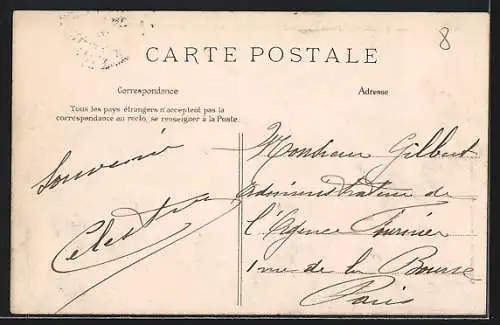 8
CARTE POSTALE
Correspondance
Adresse
Tous les pays étrangers n'acceptent pas la
correspondance au recto, se renseigner à la Poste.
Souvenir
Monsieur Gilbert
Administrateur de
l'Agence Fournier
1 rue de la Bourse
Paris